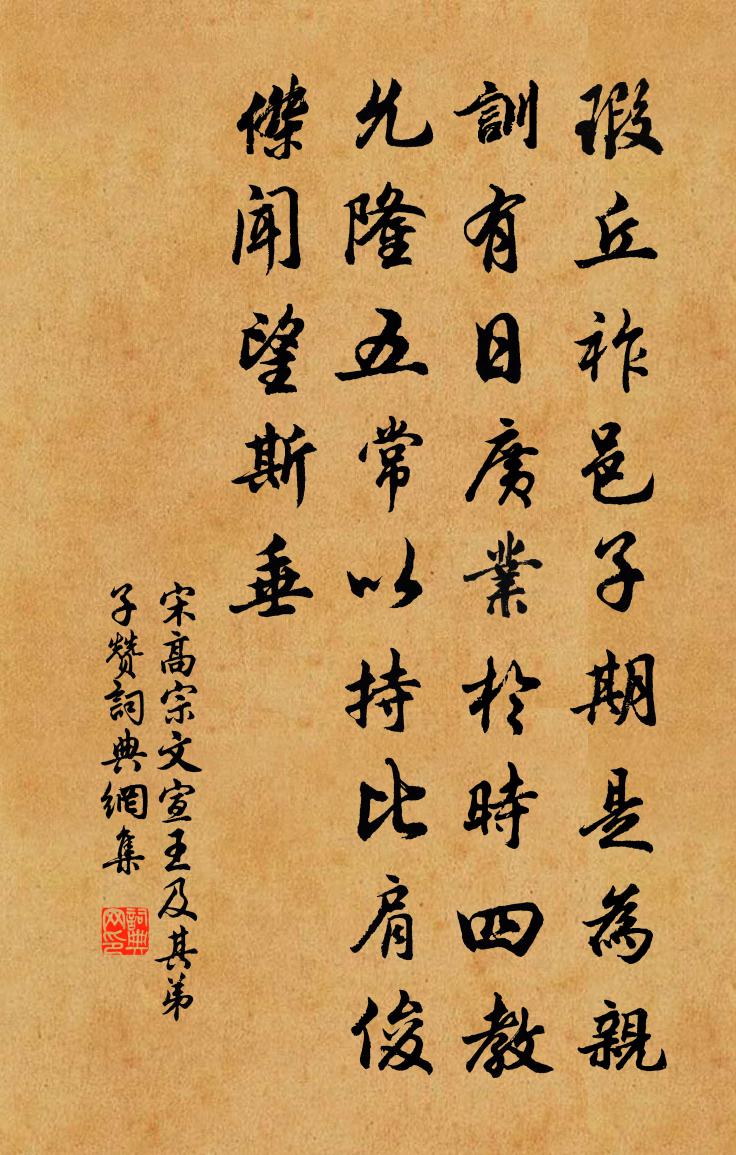 瑕丘祚邑子期是為親
訓有日廣業於時四教
允隆五常以持比肩俊
傑聞望斯垂
宋高宗文宣王及其弟
子贊詞典網集
詞典网印